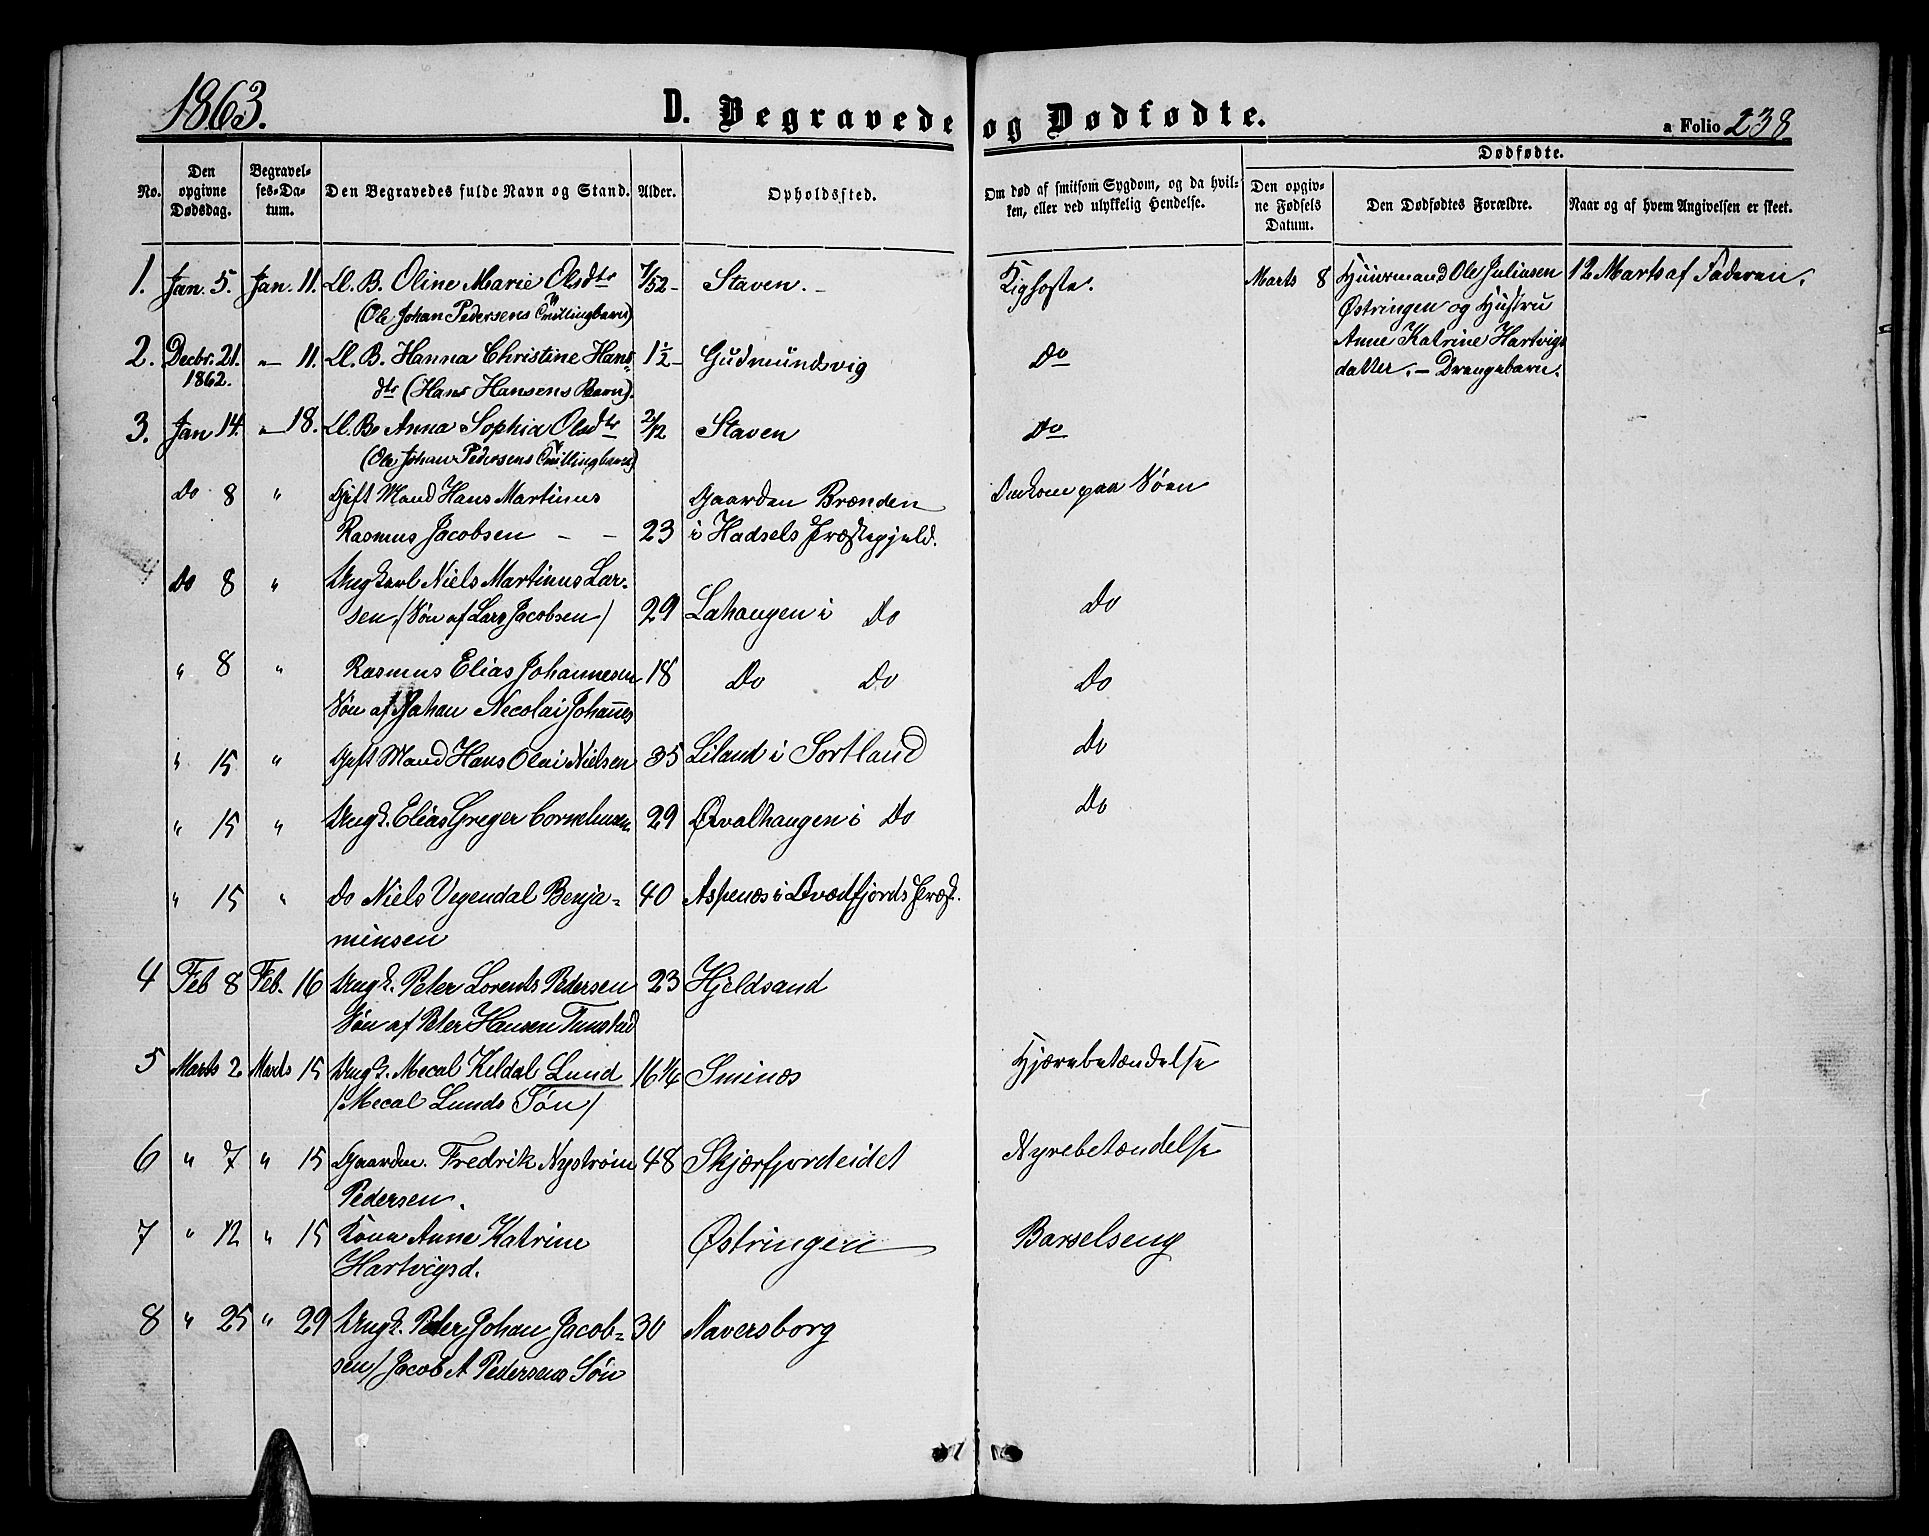 1863.
D. Begravede og Dødfødte.
a Folio 238
No.
Den opgivne Dødsdag.
Begravelses-Datum.
Den Begravedes fulde Navn og Stand.
Alder.
Opholdssted.
Om død af smitsom Sygdom, og da hvilken, eller ved ulykkelig Hendelse.
Dødfødte.
Den opgivne Fødsels Datum.
Den Dødfødtes Forældre.
Naar og af hvem Angivelsen er skeet.
1. Jan. 5. Jan. 11. Ll. B. Oline Marie Olsdtr 7/52 - Staven. - Kighoste. Marts 8 Huusmand Ole Juliusen 12 Marts af Faderen.
(Ole Johan Pedersens Tvillingbarn) Østringen og Hustru
2. Decbr. 21. " 11. Ll. B. Hanna Christine Hans- 1½ - Gudmundvig Do Anne Katrine Hartvigs
1862. dtr (Hans Hansens Barn). datter. - Drengebarn.
3. Jan 14. " 18. Ll. B. Anna Sophia Olsdtr 2/12 Staven Do
(Ole Johan Pedersens Tvillingbarn)
Do 8 " Gift Mand Hans Martinus Gaarden Brænden Omkom paa Søen
Rasmus Jacobsen - - 23 i Hadsels Præstegjeld.
Do 8 " Ungkarl Niels Martinus Lar-
sen /Søn af Lars Jacobsen/ 29 Lahaugen i Do Do
" 8 " Rasmus Elias Johannesen 18 Do Do Do
Søn af Johan Necolai Johannes
" 15 " Gift Mand Hans Olai Nielsen 35 Liland i Sortland Do
" 15 " Ungk. Elias Greger Corneliusen 29 Qvalhaugen i Do Do
" 15 " Do Niels Vegendal Benja- 40 Aspenæs i Qvædfjords Præst.
minsen
4 Feb 8 Feb. 16 Ungk. Peter Lorents Pedersen 23 Hjeldsand
Søn af Peter Hansen Tunstad
5 Marts 2 Marts 15 Ungk. Mecal Kildal Lund 16 1/6 Sminæs Hjernebetændelse
/Mecal Lunds Søn/
6 " 7 " 15 Gaardm. Fredrik Nystrøm 48 Skjærfjordeidet Nyrebetændelse
Pedersen.
7 " 12 " 15 Kona Anne Katrine Østringen Barselseng
Hartvigsd.
8 " 25 " 29 Ungk. Peter Johan Jacob- 30 Naversborg
sen/ Jacob A Pedersens Søn